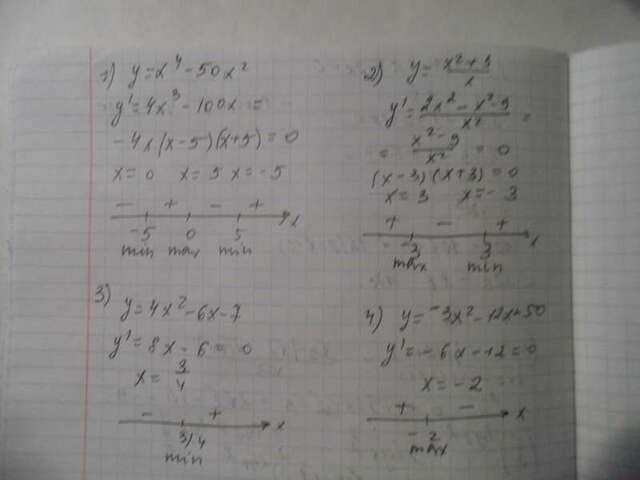 1) y = x⁴ - 50x²
y' = 4x³ - 100x =
- 4x(x-5)(x+5) = 0
x = 0 x = 5 x = -5
- + - +
-5 0 5 x
min max min
2) y = (x² + 9)/x
y' = (2x² - x² - 9)/x² =
= (x² - 9)/x² = 0
(x - 3)(x + 3) = 0
x = 3 x = - 3
+ - +
-3 3 x
max min
3) y = 4x² - 6x - 7
y' = 8x - 6 = 0
x = 3/4
- +
3/4 x
min
4) y = -3x² - 12x + 50
y' = - 6x - 12 = 0
x = - 2
+ -
- 2 x
max